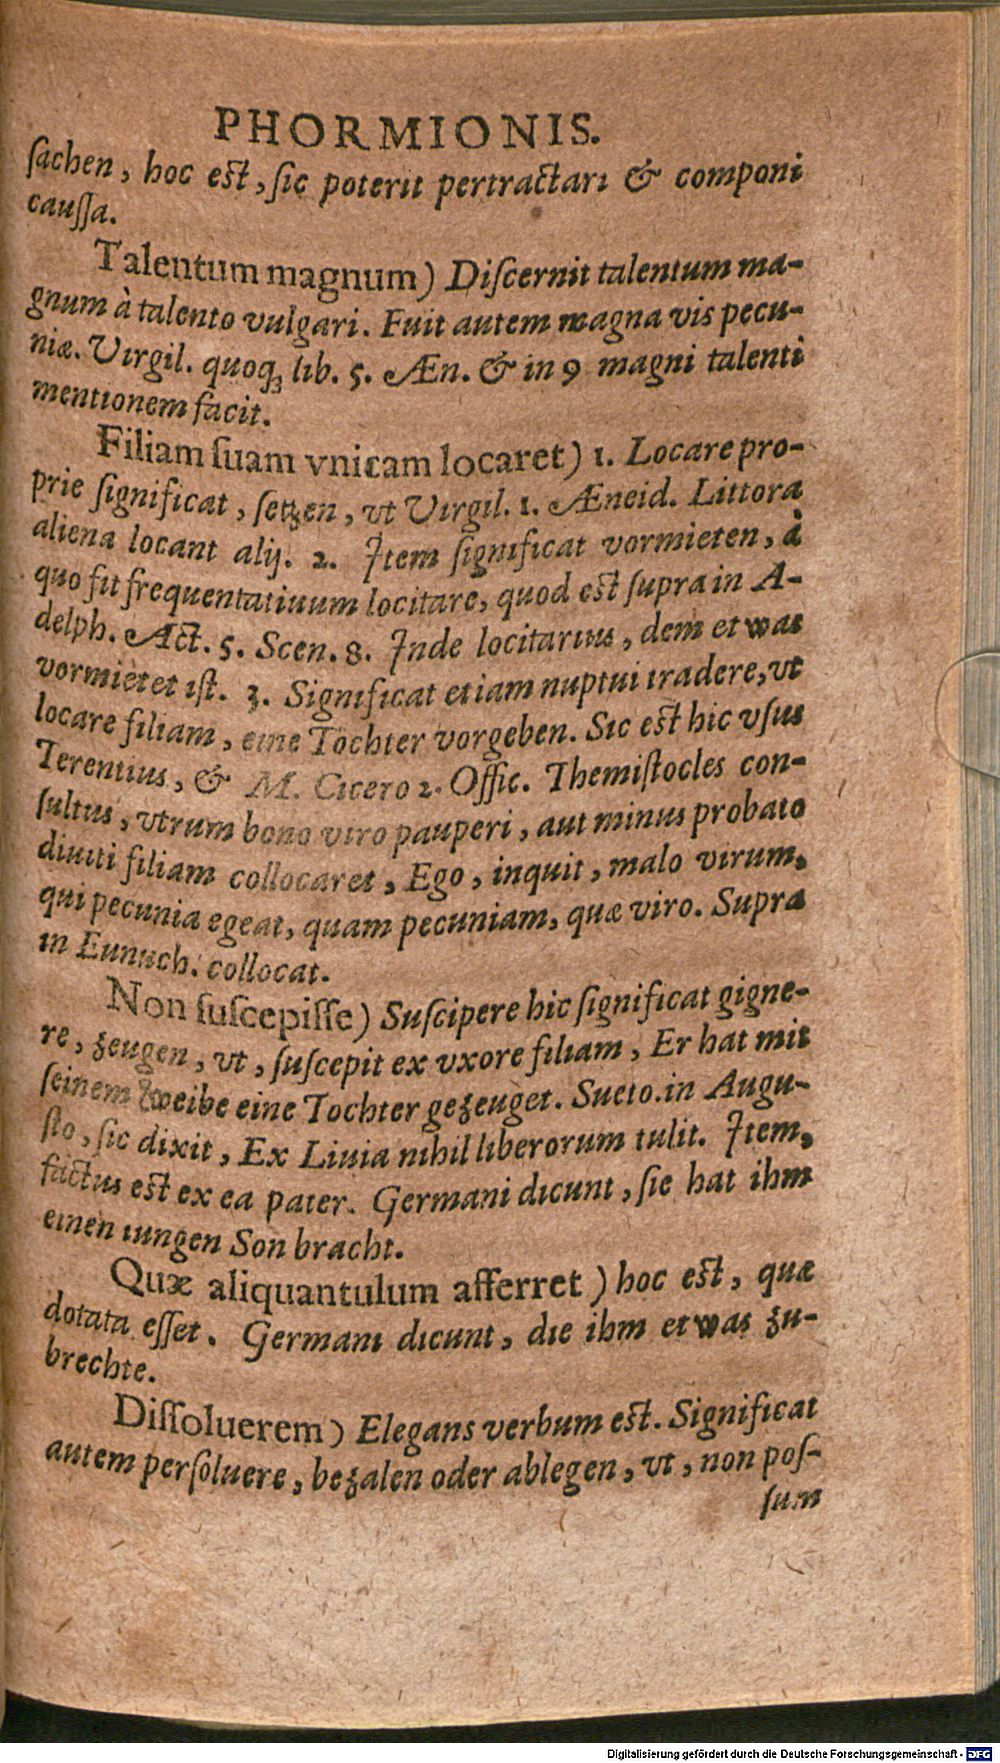 PHORMIONIS.
ſachen, hoc eſt, ſic poterit pertractari & componi
cauſſa.
Talentum magnum) Diſcernit talentum ma-
gnum à talento vulgari. Fuit autem magna vis pecu-
niæ. Virgil. quoq; lib. 5. Æn. & in 9 magni talenti
mentionem facit.
Filiam ſuam vnicam locaret) 1. Locare pro-
prie ſignificat, ſetzen, vt Virgil. 1. Æneid. Littora
aliena locant alij. 2. Item ſignificat vormieten, à
quo fit frequentatiuum locitare, quod eſt ſupra in A-
delph. Act. 5. Scen. 8. Inde locitarius, dem etwas
vormietet iſt. 3. Significat etiam nuptui tradere, vt
locare filiam, eine Tochter vorgeben. Sic eſt hic vſus
Terentius, & M. Cicero 2. Offic. Themiſtocles con-
ſultus, vtrum bono viro pauperi, aut minus probato
diuiti filiam collocaret, Ego, inquit, malo virum,
qui pecunia egeat, quam pecuniam, quæ viro. Supra
in Eunuch. collocat.
Non ſuſcepiſſe) Suſcipere hic ſignificat gigne-
re, zeugen, vt, ſuſcepit ex vxore filiam, Er hat mit
ſeinem Zweibe eine Tochter gezeuget. Sueto. in Augu-
ſto, ſic dixit, Ex Liuia nihil liberorum tulit. Item,
factus eſt ex ea pater. Germani dicunt, ſie hat ihm
einen iungen Son bracht.
Quæ aliquantulum afferret) hoc eſt, quæ
dotata eſſet. Germani dicunt, die ihm etwas zu-
brechte.
Diſſoluerem) Elegans verbum eſt. Significat
autem perſoluere, bezalen oder ablegen, vt, non poſ-
ſum
Digitalisierung gefördert durch die Deutsche Forschungsgemeinschaft - DFG